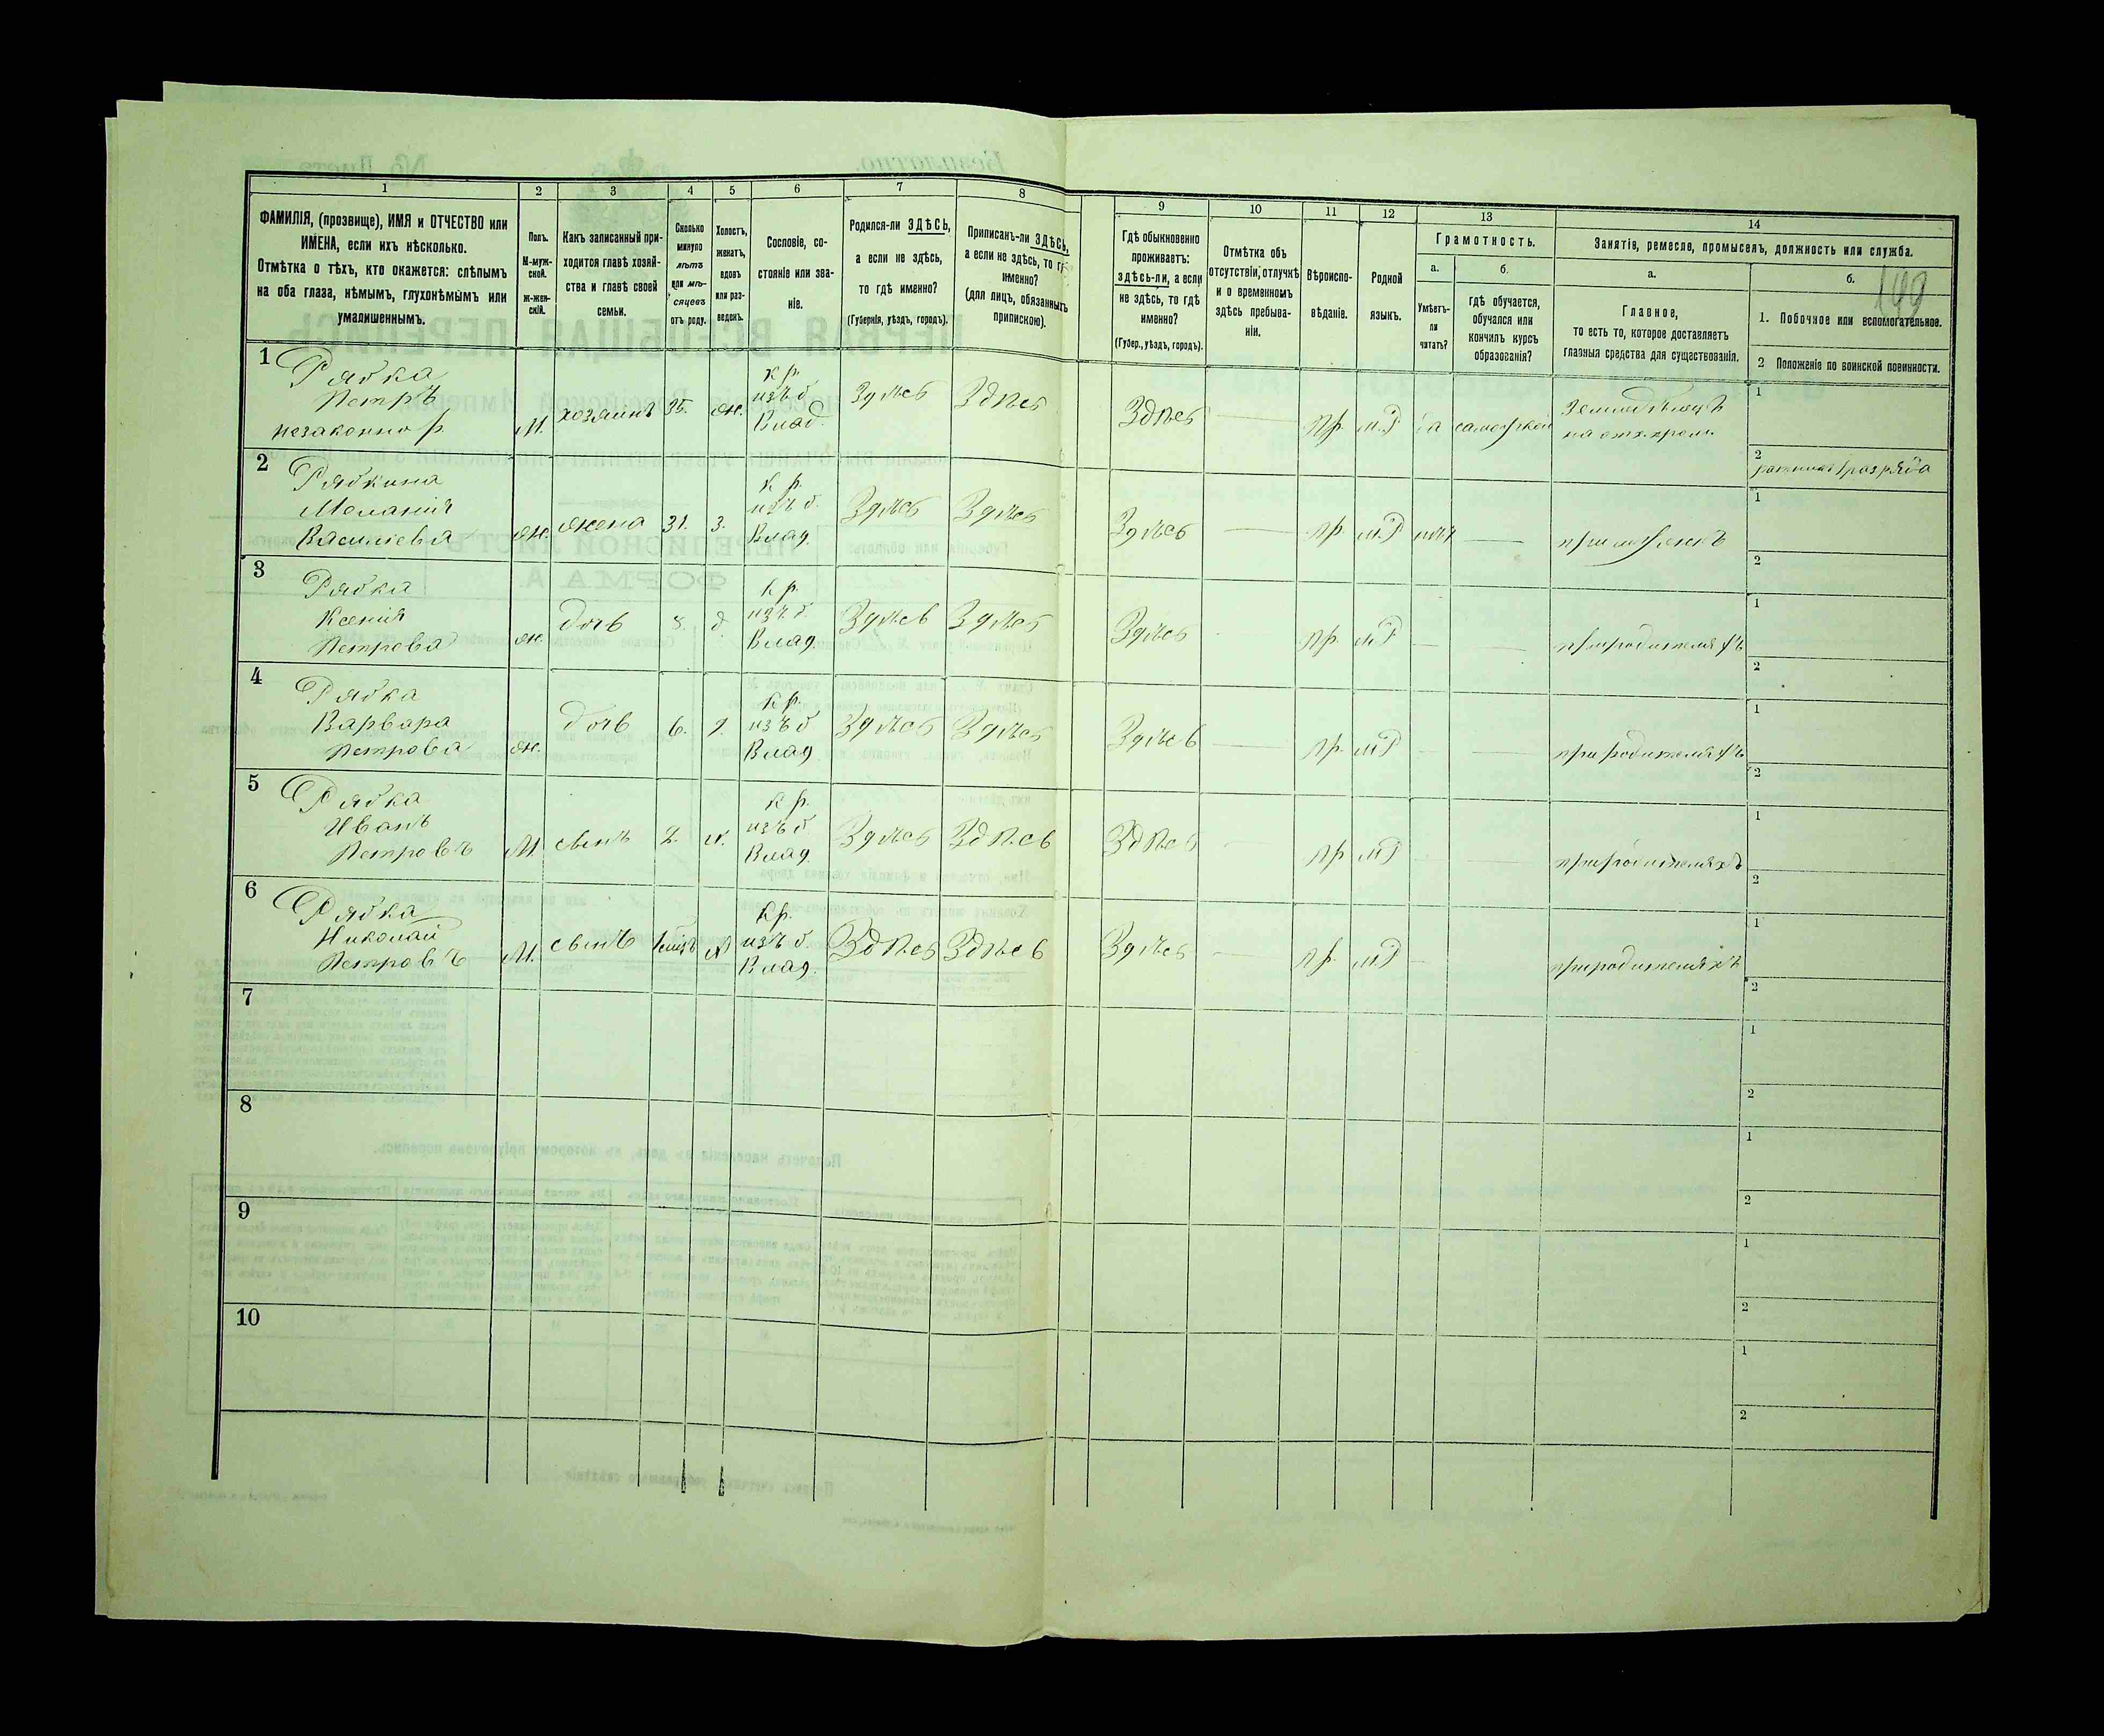 1 2 3 4 5 6 7 8 9 10 11 12 13 14
ФАМИЛІЯ, (прозвище), ИМЯ и ОТЧЕСТВО или
ИМЕНА, если ихъ нѣсколько.
Отмѣтка о тѣхъ, кто окажется: слѣпымъ
на оба глаза, нѣмымъ, глухонѣмымъ или
умалишеннымъ.
Полъ.
М-муж-
ской.
ж-жен-
скій.
Какъ записанный при-
ходится главѣ хозяй-
ства и главѣ своей
семьи.
Сколько
минуло
лѣтъ
или мѣ-
сяцевъ
отъ роду.
Холостъ,
женатъ,
вдовъ
или раз-
веденъ.
Сословіе, со-
стояніе или зва-
ніе.
Родился-ли ЗДѢСЬ,
а если не здѣсь,
то гдѣ именно?
(Губернія, уѣздъ, городъ).
Приписанъ-ли ЗДѢСЬ,
а если не здѣсь, то гдѣ
именно?
(для лицъ, обязанныхъ
припискою).
Гдѣ обыкновенно
проживаетъ:
здѣсь-ли, а если
не здѣсь, то гдѣ
именно?
(Губер., уѣздъ, городъ).
Отмѣтка объ
отсутствіи, отлучкѣ
и о временномъ
здѣсь пребыва-
ніи.
Вѣроиспо-
вѣданіе.
Родной
языкъ.
Грамотность.
а.
Умѣетъ-
ли
читать?
б.
гдѣ обучается,
обучался или
кончилъ курсъ
образованія?
Занятіе, ремесло, промыселъ, должность или служба.
а.
Главное,
то есть то, которое доставляетъ
главныя средства для существованія.
б.
149
1. Побочное или вспомогательное.
2 Положеніе по воинской повинности.
1 Рябка
Петръ
незаконно р.
М. хозяинъ 35. ж.
кр.
изъ б.
Влад.
Здѣсь Здѣсь Здѣсь — пр. м.Р
Земледѣлецъ
1
2
ратникъ 1 разряда
2 Рябкина
Меланія
Василіева
ж. жена 31. з.
кр.
изъ б.
Влад.
Здѣсь Здѣсь Здѣсь — пр. м.Р нѣт — при мужѣ
1
2
3 Рябка
Ксенія
Петрова
ж. дочь 8. д.
кр.
изъ б.
Влад.
Здѣсь Здѣсь Здѣсь - пр. м.Р — — при родителяхъ
1
2
4 Рябка
Варвара
Петрова
ж. дочь 6. д.
кр.
изъ б.
Влад
Здѣсь Здѣсь Здѣсь — пр. м.Р — — при родителяхъ
1
2
5 Рябка
Иванъ
Петровъ
М. сынъ 2. х.
кр.
изъ б.
Влад.
Здѣсь Здѣсь Здѣсь — пр м.Р — — при родителяхъ
1
2
6 Рябка
Николай
Петровъ
М. сынъ х
кр.
изъ б.
Влад.
Здѣсь Здѣсь Здѣсь — пр. м.Р — при родителяхъ
1
2
7
1
2
8
1
2
9
1
2
10
1
2